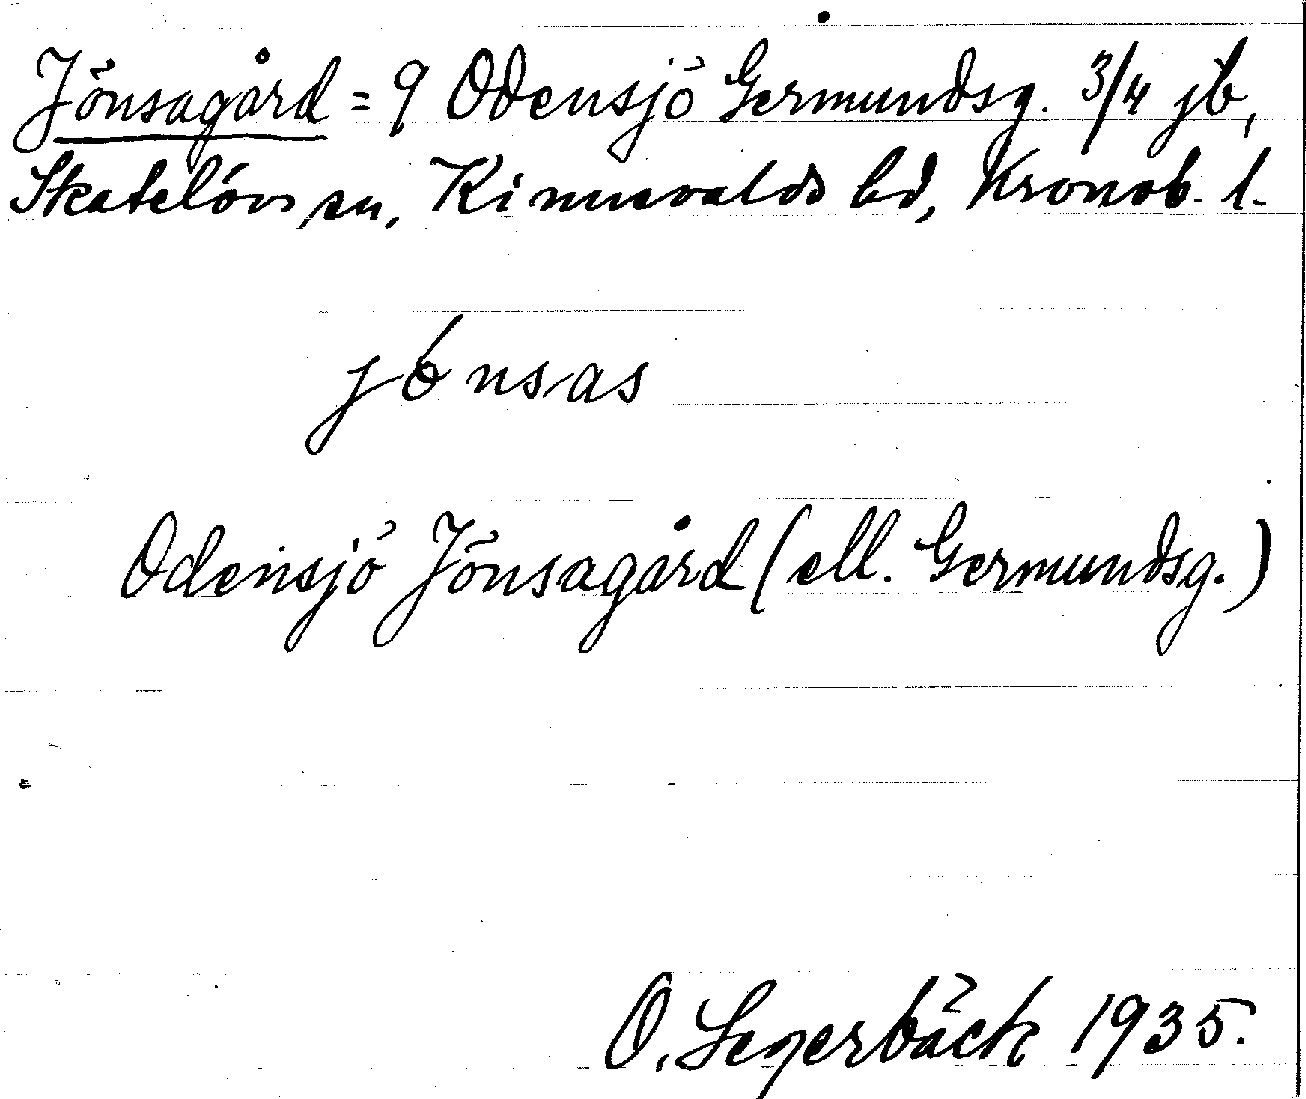 Jönsagård = 9 Odensjö Germundsg. 3/4 jb,
Skatelövs sn, Kinnevalds hd, Kronob. l.
jónsas
Odensjö Jönsagård (ell. Germundsg.)
O. Segerbäck 1935.